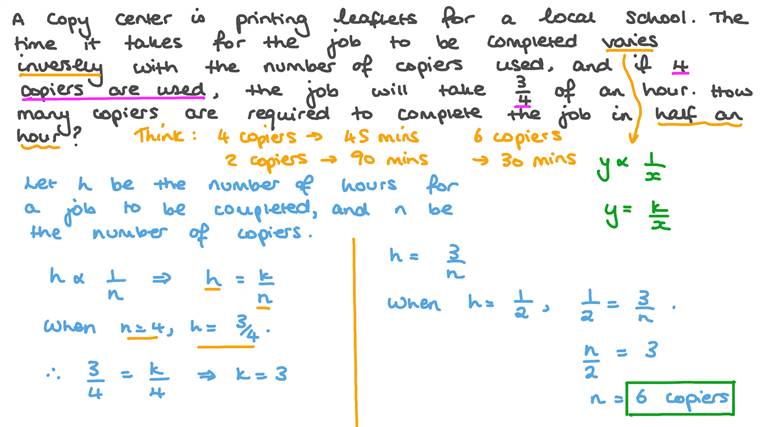 A copy center is printing leaflets for a local school. The
time it takes for the job to be completed varies
inversely with the number of copiers used, and if 4
copiers are used, the job will take 3/4 of an hour. How
many copiers are required to complete the job in half an
hour?
Think: 4 copiers → 45 mins 6 copiers
2 copiers → 90 mins → 30 mins
y ∝ 1/x
y = k/x
Let h be the number of hours for
a job to be completed, and n be
the number of copiers.
h ∝ 1/n ⇒ h = k/n
When n=4, h = 3/4.
∴ 3/4 = k/4 ⇒ k = 3
h = 3/n
When h = 1/2, 1/2 = 3/n.
n/2 = 3
n = 6 copiers